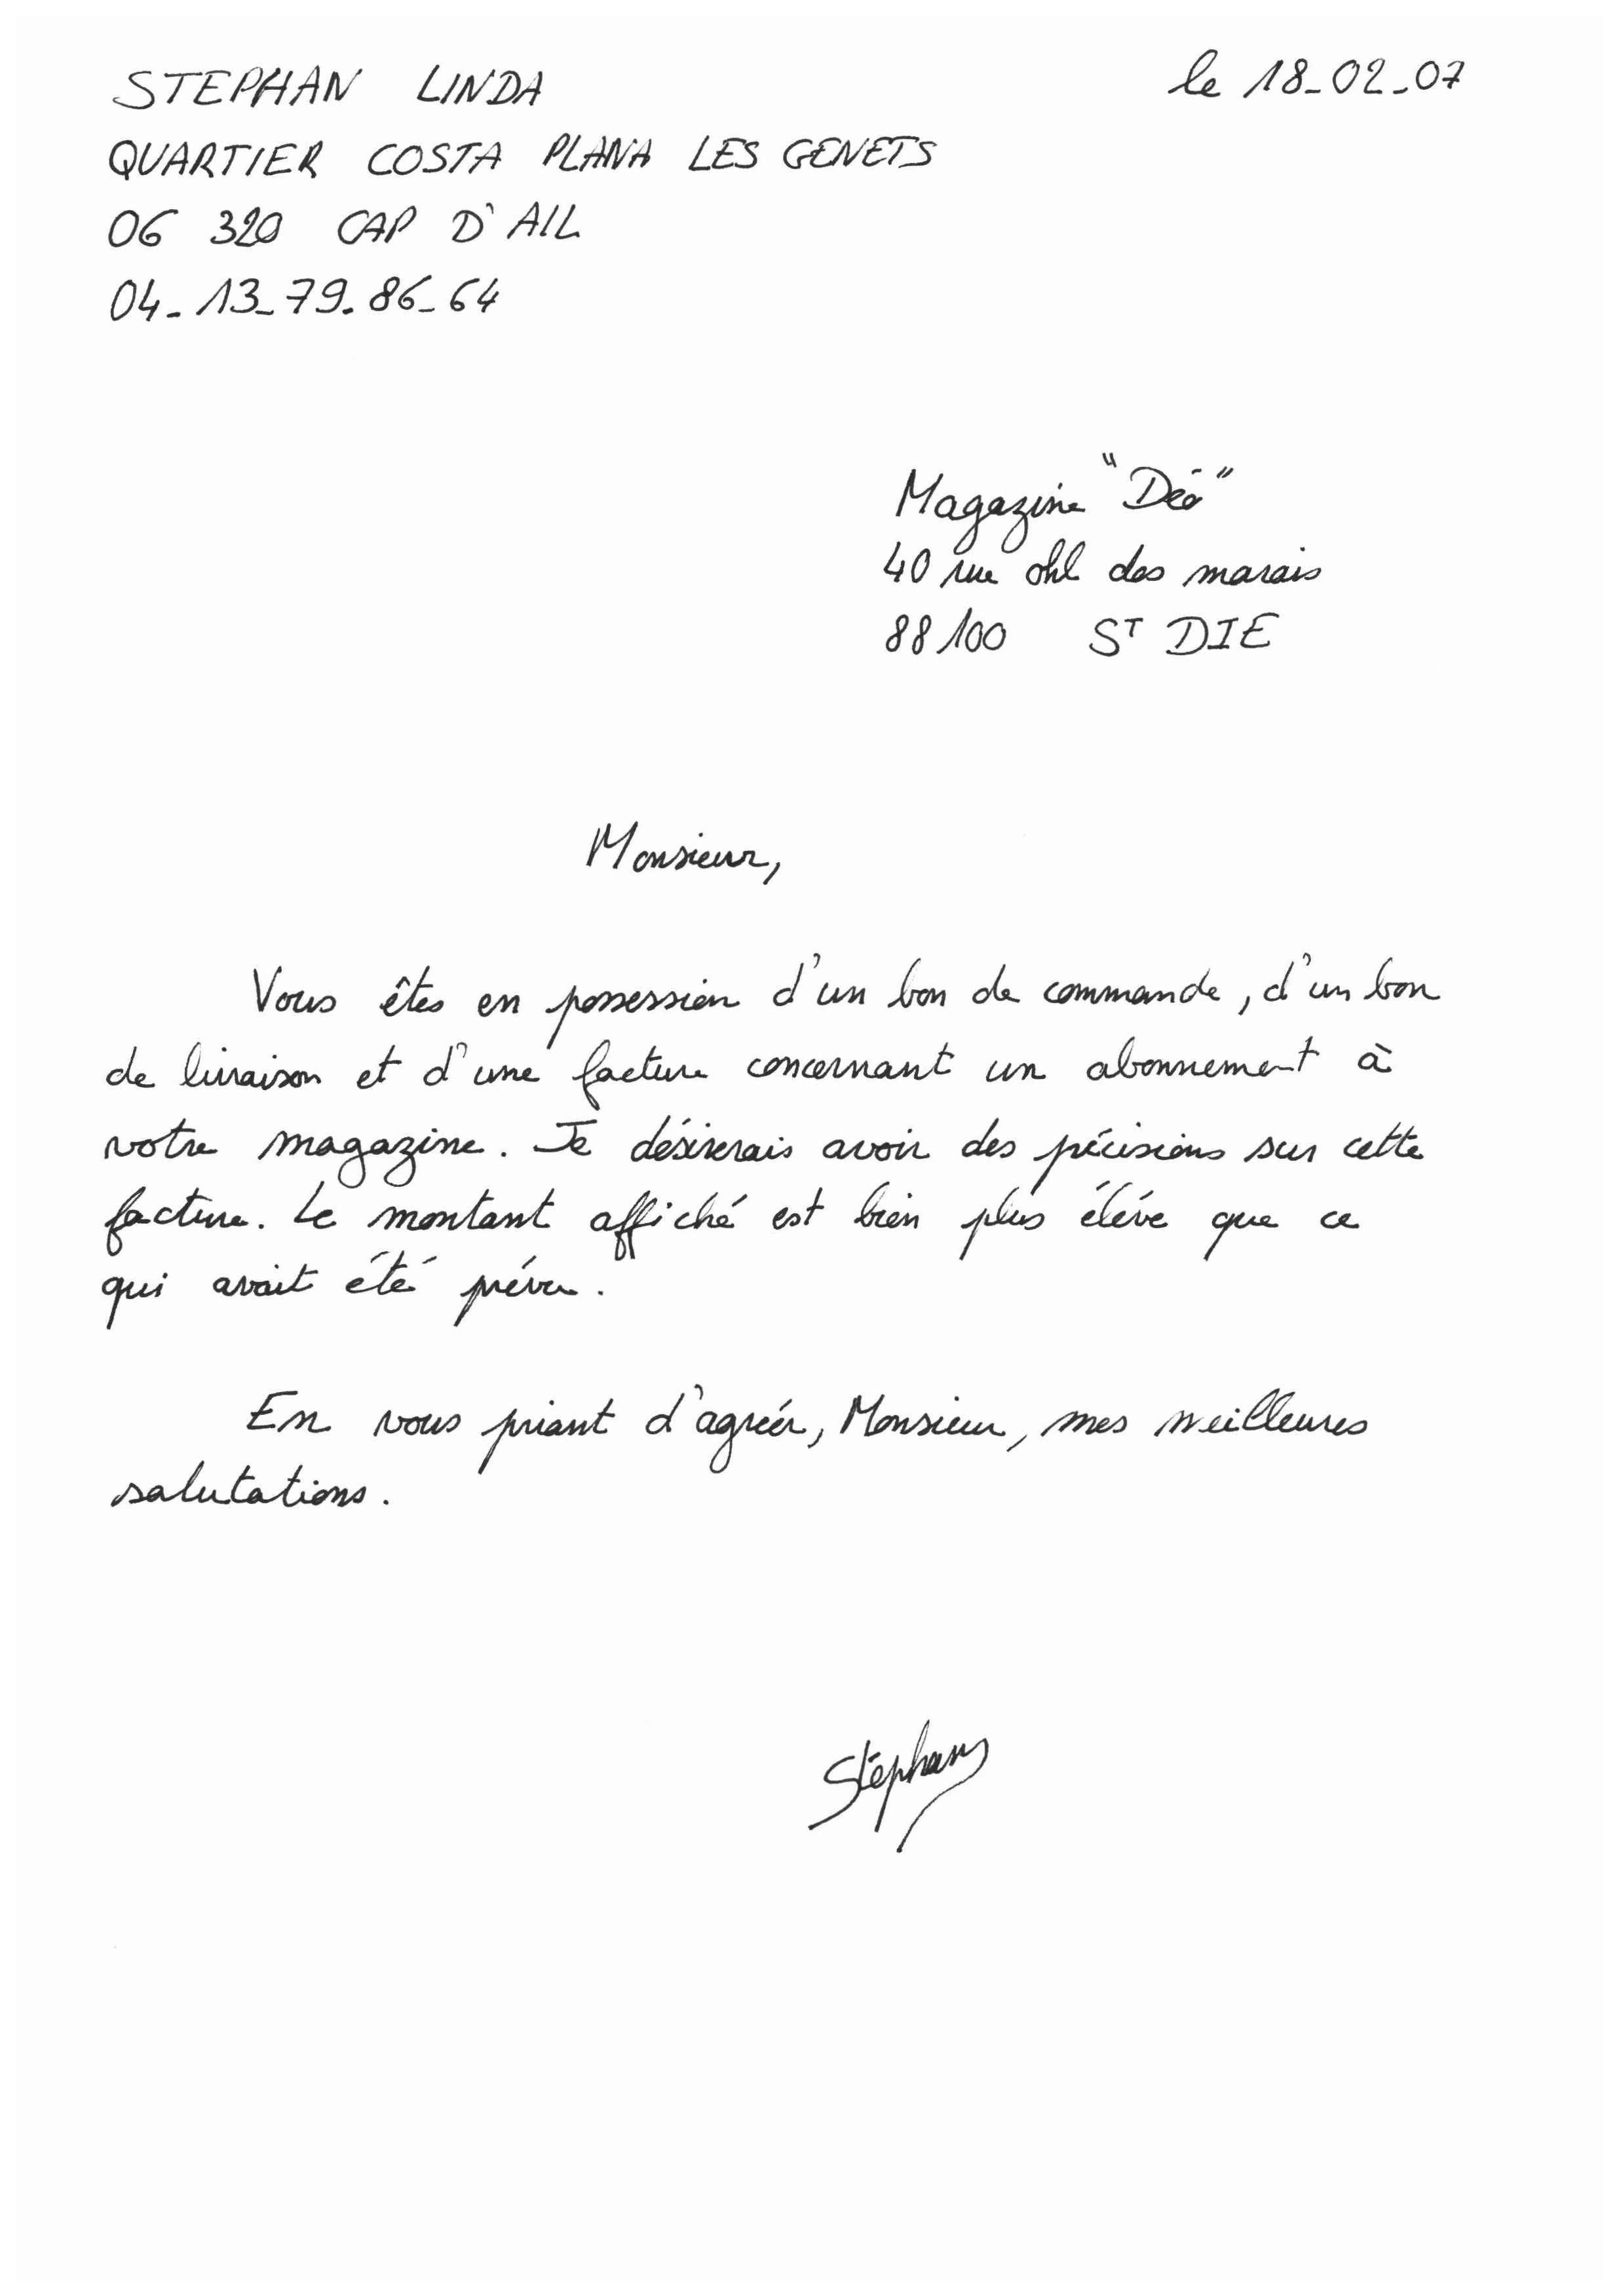 STEPHAN LINDA
le 18-02-07
QUARTIER COSTA PLANA LES GENETS
06 320 CAP D'AIL
04-13-79.86-64
Magazine "Déo"
40 rue ohl des marais
88100 ST DIE
Monsieur,
Vous êtes en possession d'un bon de commande, d'un bon
de livraison et d'une facture concernant un abonnement à
votre magazine. Je désirerais avoir des précisions sur cette
facture. Le montant affiché est bien plus éléve que ce
qui avait été prévu.
En vous priant d'agréer, Monsieur, mes meilleures
salutations.
Stephan